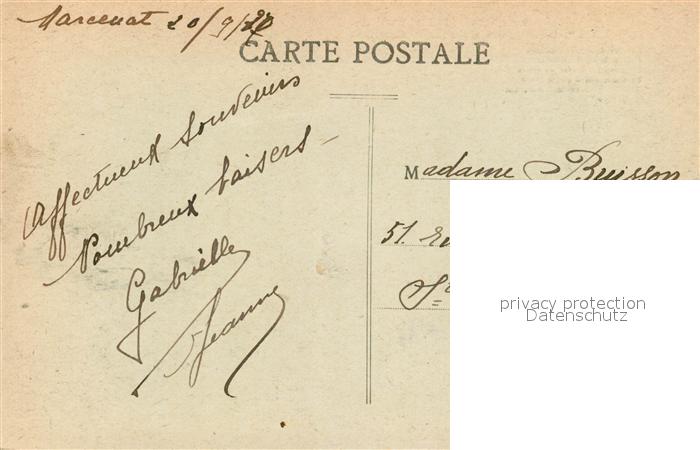 Marcenat 20/9/20
CARTE POSTALE
Affectueux souvenirs
Nombreux baisers
Gabrielle
Jeanne
Madame Buisson
51. ru
St
privacy protection
Datenschutz